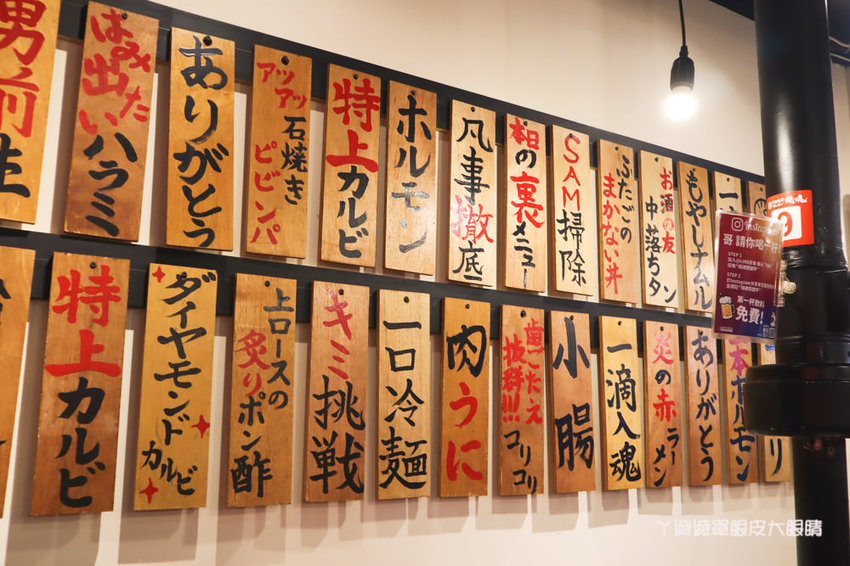 男前
はみ出たい
ハラミ
ありがとう
アツアツ
石焼き
ビビンバ
特上
カルビ
ホルモン
凡事徹底
柏の裏メニュー
SAM掃除
ふたごの
まかない丼
お酒の友
中落ちタン
もやしナムル
特上
カルビ
ダイヤモンド
カルビ
上ロースの
炙りポン酢
キミ挑戦
一口冷麺
肉うに
歯ごたえ
抜群!!!
コリコリ
小腸
一滴入魂
炎の赤
ラーメン
ありがとう
ホルモン
9
Instagram
哥 請你喝一杯
STEP 1
STEP 2
第一杯飲料
免費!
ㄚ綾綾單眼皮大眼睛